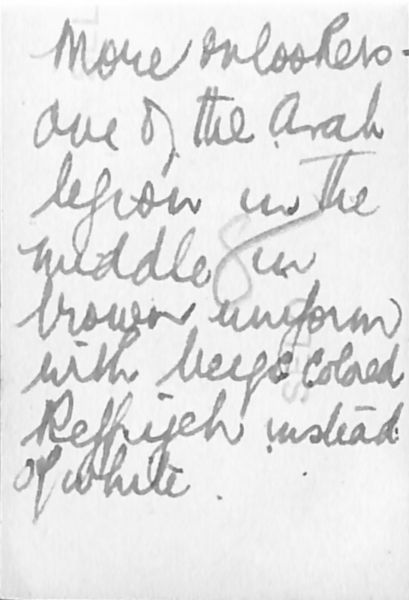 More onlookers -
one of the Arab
legion in the
middle in
brown uniform
with beige colored
Keffiyeh instead
of white.